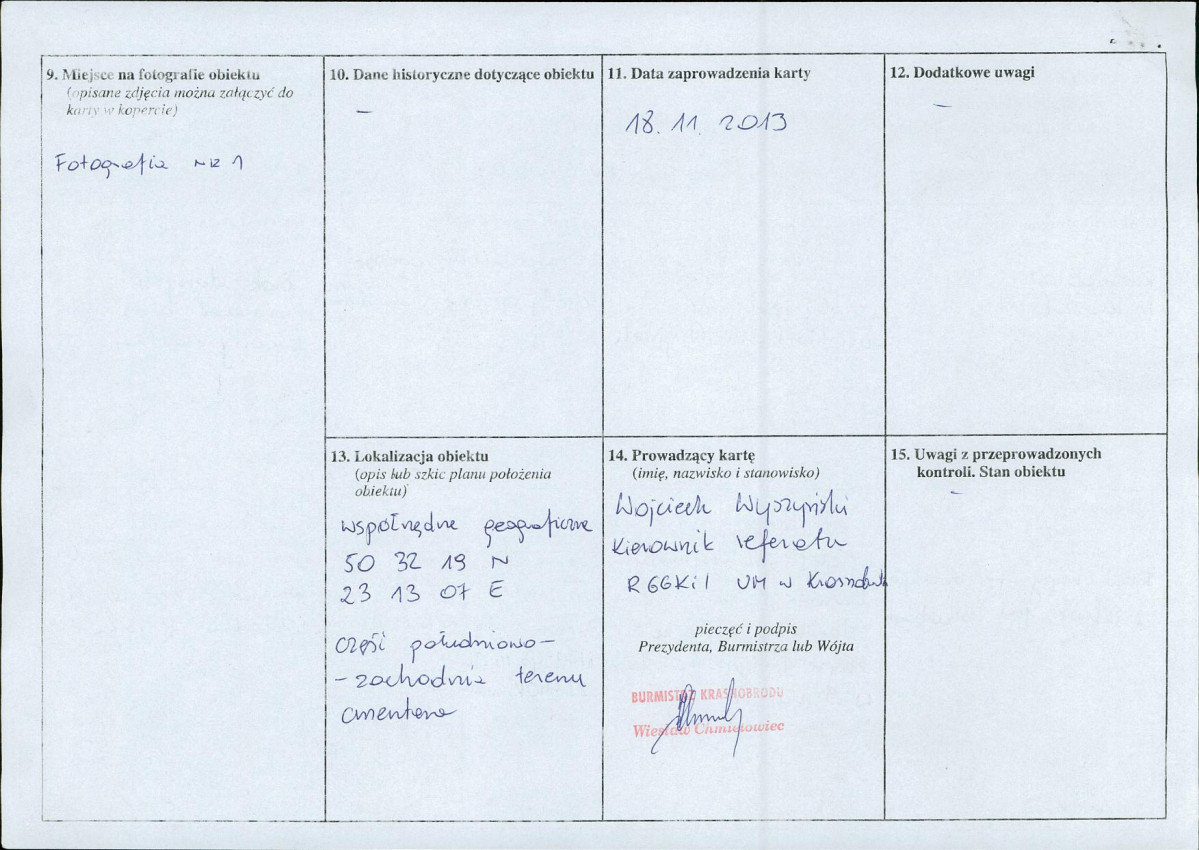 9. Miejsce na fotografie obiektu
(opisane zdjęcia można załączyć do
karty w kopercie)
Fotografia nr 1
10. Dane historyczne dotyczące obiektu
–
11. Data zaprowadzenia karty
18. 11. 2013
12. Dodatkowe uwagi
–
13. Lokalizacja obiektu
(opis lub szkic planu położenia
obiektu)
współrzędne geograficzne
50 32 19 N
23 13 07 E
część południowo–
–zachodnia terenu
cmentarza
14. Prowadzący kartę
(imię, nazwisko i stanowisko)
Wojciech Wyszyński
Kierownik referatu
RGGKiI UM w
pieczęć i podpis
Prezydenta, Burmistrza lub Wójta
BURMISTRZ KRASNOBRODU
Wiesław Chmielowiec
15. Uwagi z przeprowadzonych
kontroli. Stan obiektu
–